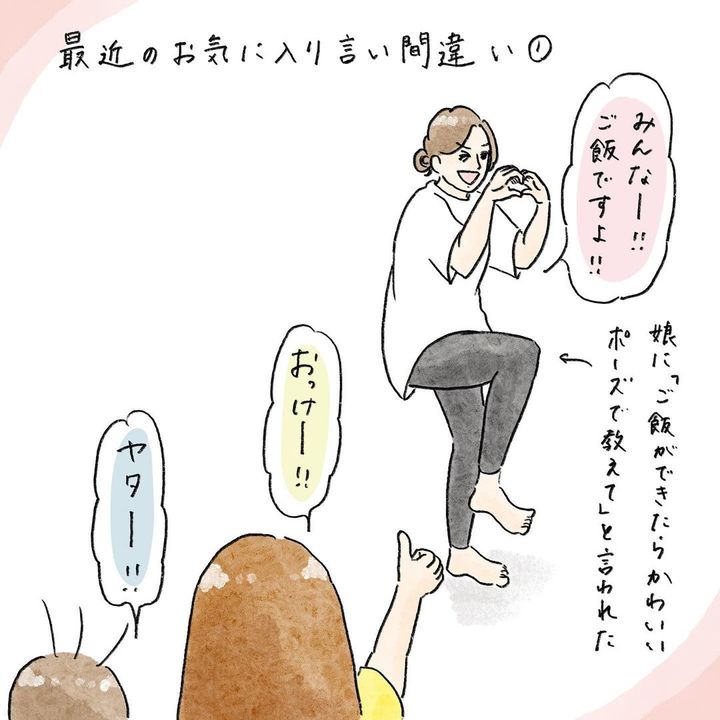 最近のお気に入り言い間違い①
みんなー!!
ご飯ですよ!!
娘に「ご飯ができたらかわいい
ポーズで教えて」と言われた
おっけー!!
ヤター!!